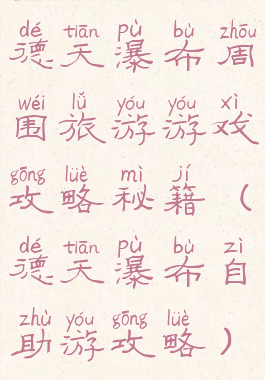 dé tiān pù bù zhōu
德天瀑布周
wéi lǚ yóu yóu xì
围旅游游戏
gōng lüè mì jí
攻略秘籍（
dé tiān pù bù zì
德天瀑布自
zhù yóu gōng lüè
助游攻略）